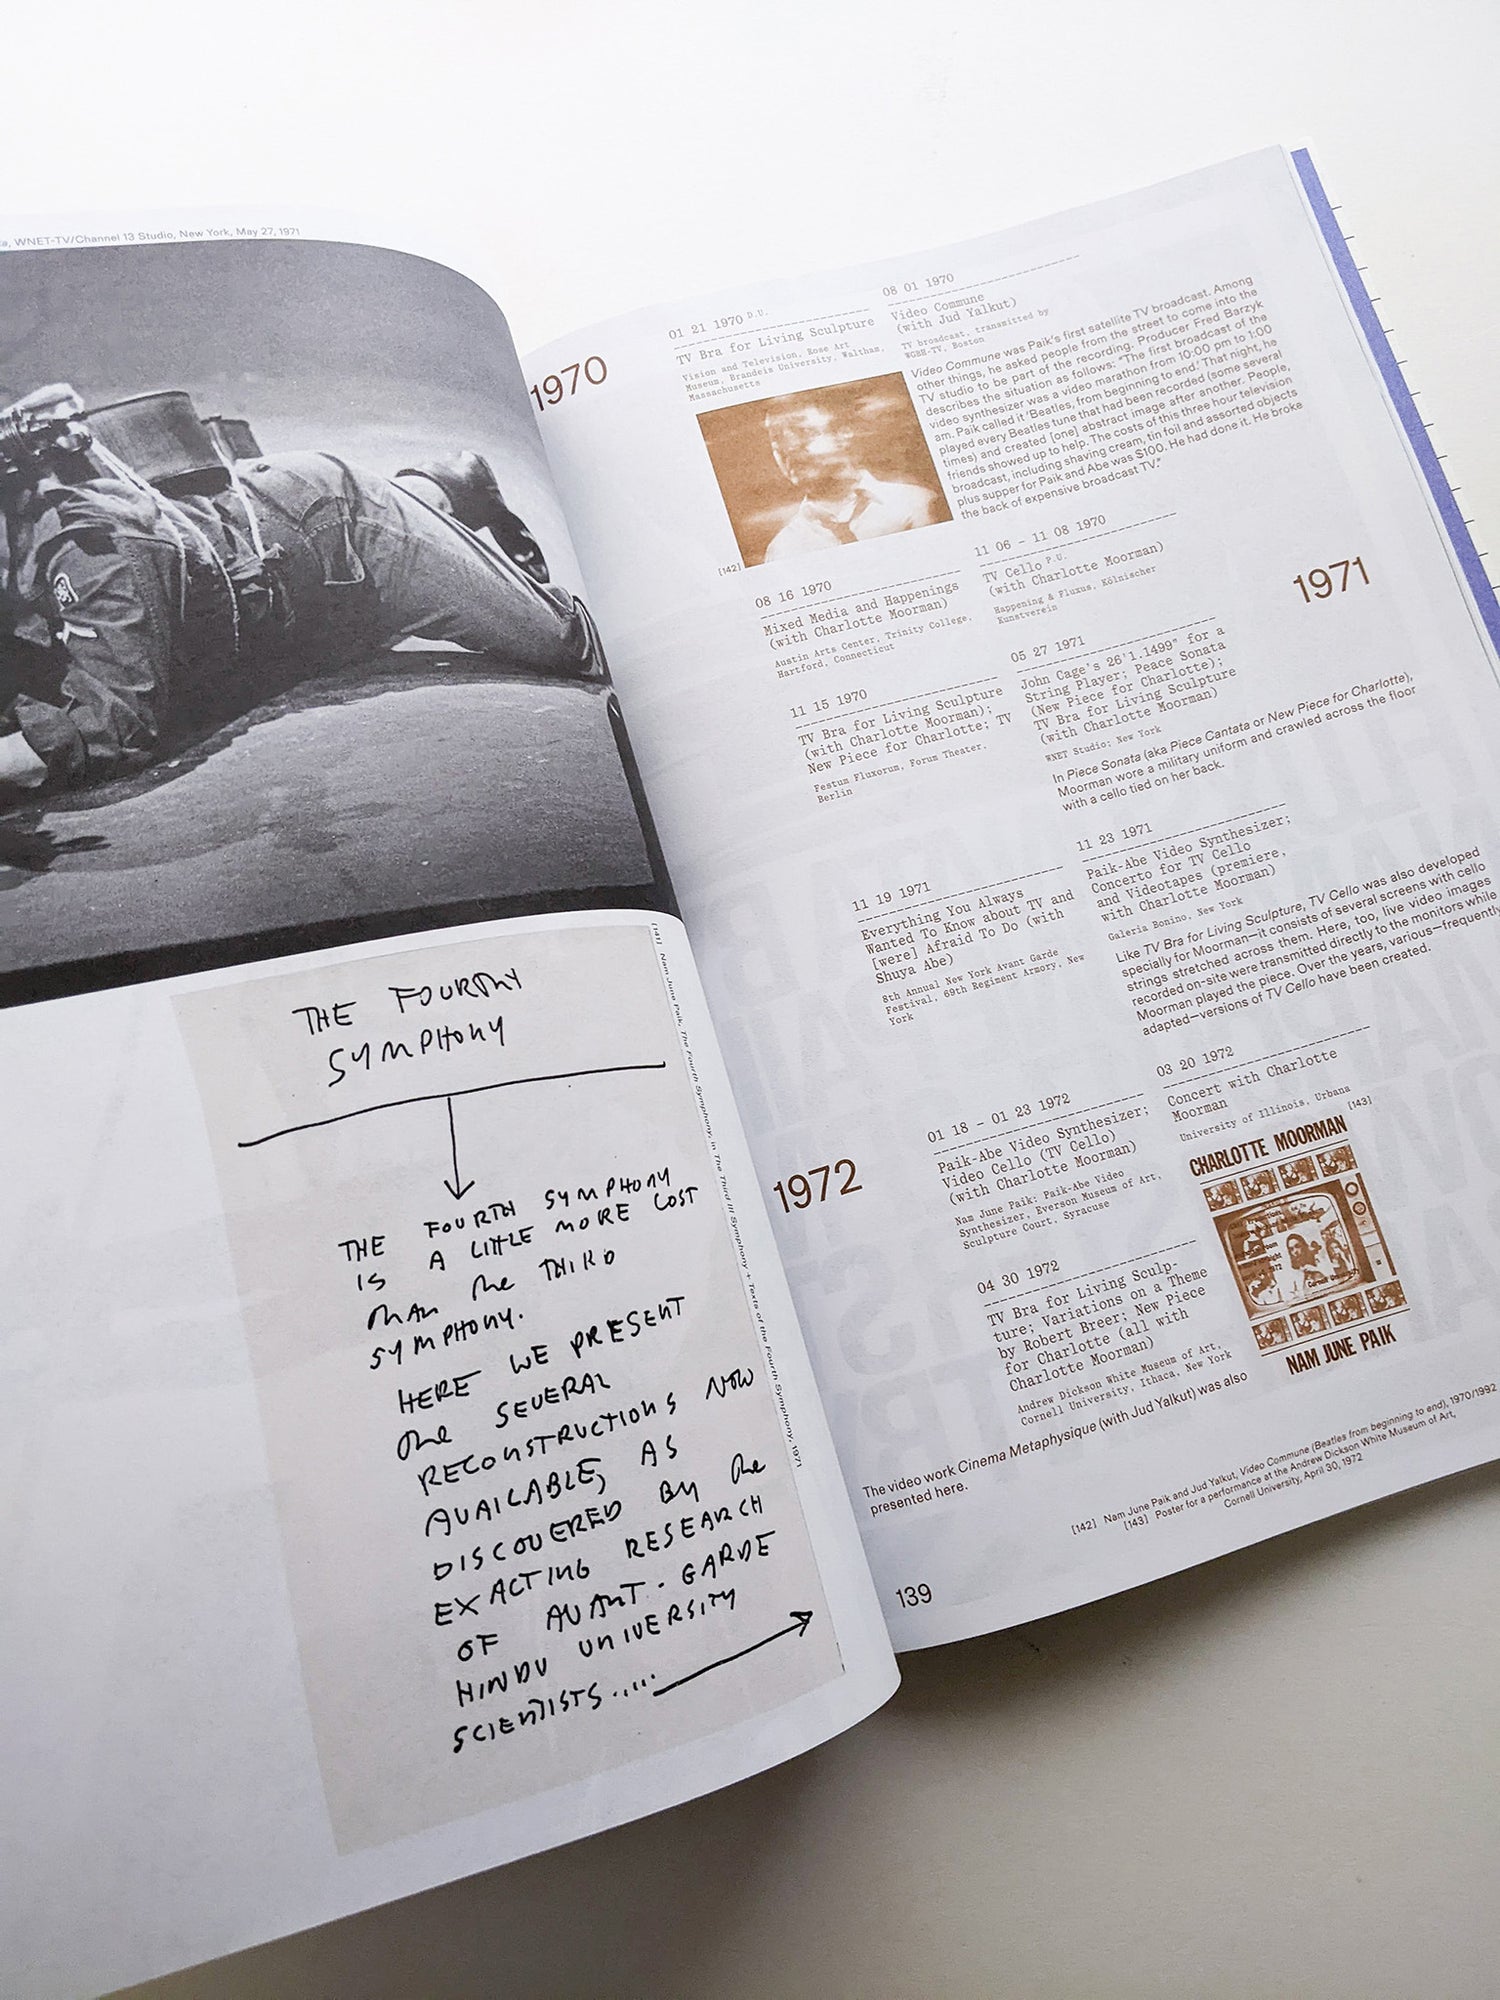 WNET-TV/Channel 13 Studio, New York, May 27, 1971
THE FOURTH
SYMPHONY
THE FOURTH SYMPHONY
IS A LITTLE MORE COST
THAN THE THIRD
SYMPHONY.
HERE WE PRESENT
THE SEVERAL
RECONSTRUCTIONS NOW
AVAILABLE, AS
DISCOVERED BY THE
EXACTING RESEARCH
OF AVANT-GARDE
HINDU UNIVERSITY
SCIENTISTS.....
[141] Nam June Paik, The Fourth Symphony, in The Third III Symphony + Texts of the Fourth Symphony, 1971
1970
01 21 1970 P.U.
TV Bra for Living Sculpture
Vision and Television, Rose Art
Museum, Brandeis University, Waltham,
Massachusetts
[142]
08 01 1970
Video Commune
(with Jud Yalkut)
TV broadcast, transmitted by
WGBH-TV, Boston
Video Commune was Paik's first satellite TV broadcast. Among
other things, he asked people from the street to come into the
TV studio to be part of the recording. Producer Fred Barzyk
describes the situation as follows: "The first broadcast of the
video synthesizer was a video marathon from 10:00 pm to 1:00
am. Paik called it 'Beatles, from beginning to end.' That night, he
played every Beatles tune that had been recorded (some several
times) and created [one] abstract image after another. People,
friends showed up to help. The costs of this three hour television
broadcast, including shaving cream, tin foil and assorted objects
plus supper for Paik and Abe was $100. He had done it. He broke
the back of expensive broadcast TV."
08 16 1970
Mixed Media and Happenings
(with Charlotte Moorman)
Austin Arts Center, Trinity College,
Hartford, Connecticut
11 06 – 11 08 1970
TV Cello P.U.
(with Charlotte Moorman)
Happening & Fluxus, Kölnischer
Kunstverein
11 15 1970
TV Bra for Living Sculpture
(with Charlotte Moorman);
New Piece for Charlotte; TV
Festum Fluxorum, Forum Theater,
Berlin
1971
05 27 1971
John Cage's 26'1.1499" for a
String Player; Peace Sonata
(New Piece for Charlotte);
TV Bra for Living Sculpture
(with Charlotte Moorman)
WNET Studio; New York
In Piece Sonata (aka Piece Cantata or New Piece for Charlotte),
Moorman wore a military uniform and crawled across the floor
with a cello tied on her back.
11 19 1971
Everything You Always
Wanted To Know about TV and
[were] Afraid To Do (with
Shuya Abe)
8th Annual New York Avant Garde
Festival, 69th Regiment Armory, New
York
11 23 1971
Paik-Abe Video Synthesizer;
Concerto for TV Cello
and Videotapes (premiere,
with Charlotte Moorman)
Galeria Bonino, New York
Like TV Bra for Living Sculpture, TV Cello was also developed
specially for Moorman—it consists of several screens with cello
strings stretched across them. Here, too, live video images
recorded on-site were transmitted directly to the monitors while
Moorman played the piece. Over the years, various—frequently
adapted—versions of TV Cello have been created.
1972
01 18 – 01 23 1972
Paik-Abe Video Synthesizer;
Video Cello (TV Cello)
(with Charlotte Moorman)
Nam June Paik: Paik-Abe Video
Synthesizer, Everson Museum of Art,
Sculpture Court, Syracuse
03 20 1972
Concert with Charlotte
Moorman
University of Illinois, Urbana
[143]
CHARLOTTE MOORMAN
NAM JUNE PAIK
04 30 1972
TV Bra for Living Sculp-
ture; Variations on a Theme
by Robert Breer; New Piece
for Charlotte (all with
Charlotte Moorman)
Andrew Dickson White Museum of Art,
Cornell University, Ithaca, New York
The video work Cinema Metaphysique (with Jud Yalkut) was also
presented here.
[142] Nam June Paik and Jud Yalkut, Video Commune (Beatles from beginning to end), 1970/1992
[143] Poster for a performance at the Andrew Dickson White Museum of Art,
Cornell University, April 30, 1972
139